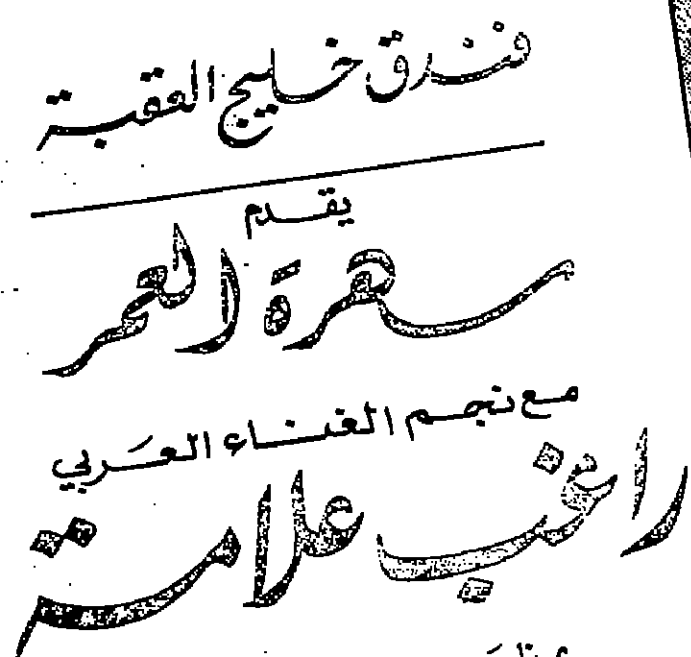 فندق خليج العقبة
يقدم
سهرة العمر
مع نجم الغناء العربي
راغب علامة